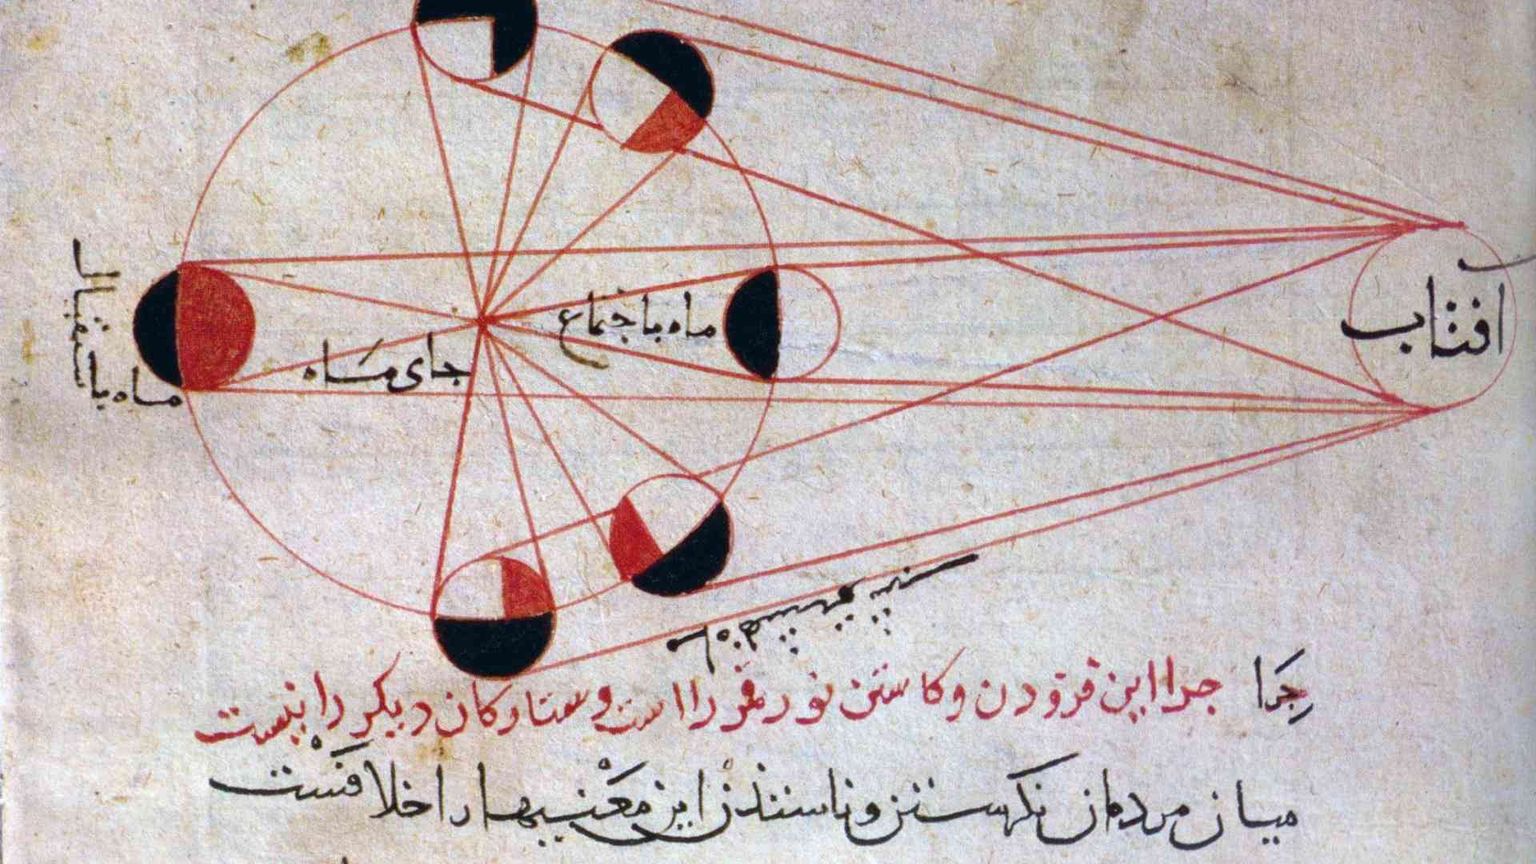 افتاب
ماه باجتماع
جای ماه
ماه باستقبال
جرا جرا این فزودن و کاستن نور قمر را است و ستارکان دیکر را نیست
میان مردمان نکرستن این معنیها را خلافست